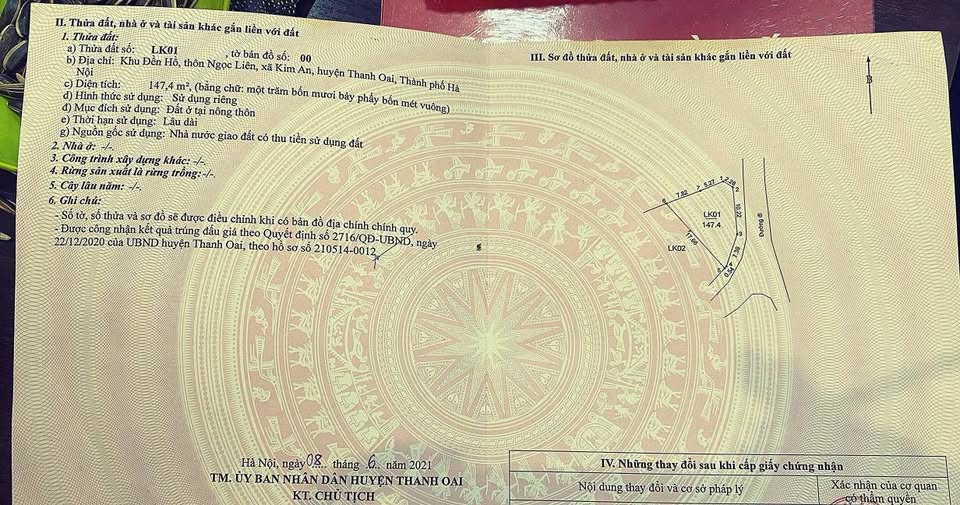 II. Thửa đất, nhà ở và tài sản khác gắn liền với đất
1. Thửa đất:
a) Thửa đất số: LK01 , tờ bản đồ số: 00
b) Địa chỉ: Khu Đền Hồ, thôn Ngọc Liên, xã Kim An, huyện Thanh Oai, Thành phố Hà
Nội
c) Diện tích: 147,4 m², (bằng chữ: một trăm bốn mươi bảy phẩy bốn mét vuông)
d) Hình thức sử dụng: Sử dụng riêng
đ) Mục đích sử dụng: Đất ở tại nông thôn
e) Thời hạn sử dụng: Lâu dài
g) Nguồn gốc sử dụng: Nhà nước giao đất có thu tiền sử dụng đất
2. Nhà ở: -/-.
3. Công trình xây dựng khác: -/-.
4. Rừng sản xuất là rừng trồng: -/-.
5. Cây lâu năm: -/-.
6. Ghi chú:
- Số tờ, số thửa và sơ đồ sẽ được điều chỉnh khi có bản đồ địa chính chính quy.
- Được công nhận kết quả trúng đấu giá theo Quyết định số 2716/QĐ-UBND, ngày
22/12/2020 của UBND huyện Thanh Oai, theo hồ sơ số 210514-0012
Hà Nội, ngày 08 tháng 6 năm 2021
TM. ỦY BAN NHÂN DÂN HUYỆN THANH OAI
KT. CHỦ TỊCH
III. Sơ đồ thửa đất, nhà ở và tài sản khác gắn liền với đất
B
7.82
7
5.27
1
2.26
2
6
LK01
147.4
10.22
3
Đường đi
LK02
17.66
7.30
4
5
0.54
IV. Những thay đổi sau khi cấp giấy chứng nhận
Nội dung thay đổi và cơ sở pháp lý
Xác nhận của cơ quan
có thẩm quyền